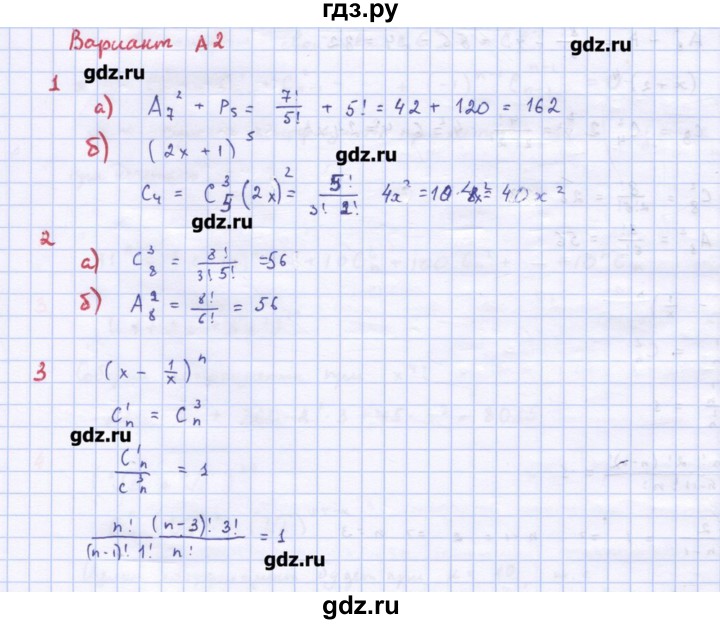 гдз.ру
Вариант А2
gdz.ru
gdz.ru
1
а) A₇² + P₅ = 7!/5! + 5! = 42 + 120 = 162
б) (2x + 1)⁵
gdz.ru
C₄ = C₅³ (2x)² = 5!/(3! 2!) 4x² = 10 · 4x² = 40x²
gdz.ru
2
а) C₈³ = 8!/(3! 5!) = 56
б) A₈² = 8!/6! = 56
3 (x - 1/x)ⁿ
Cₙ¹ = Cₙ³
gdz.ru
Cₙ¹/Cₙ³ = 1
n! (n-3)! 3! / (n-1)! 1! n! = 1
gdz.ru
gdz.ru